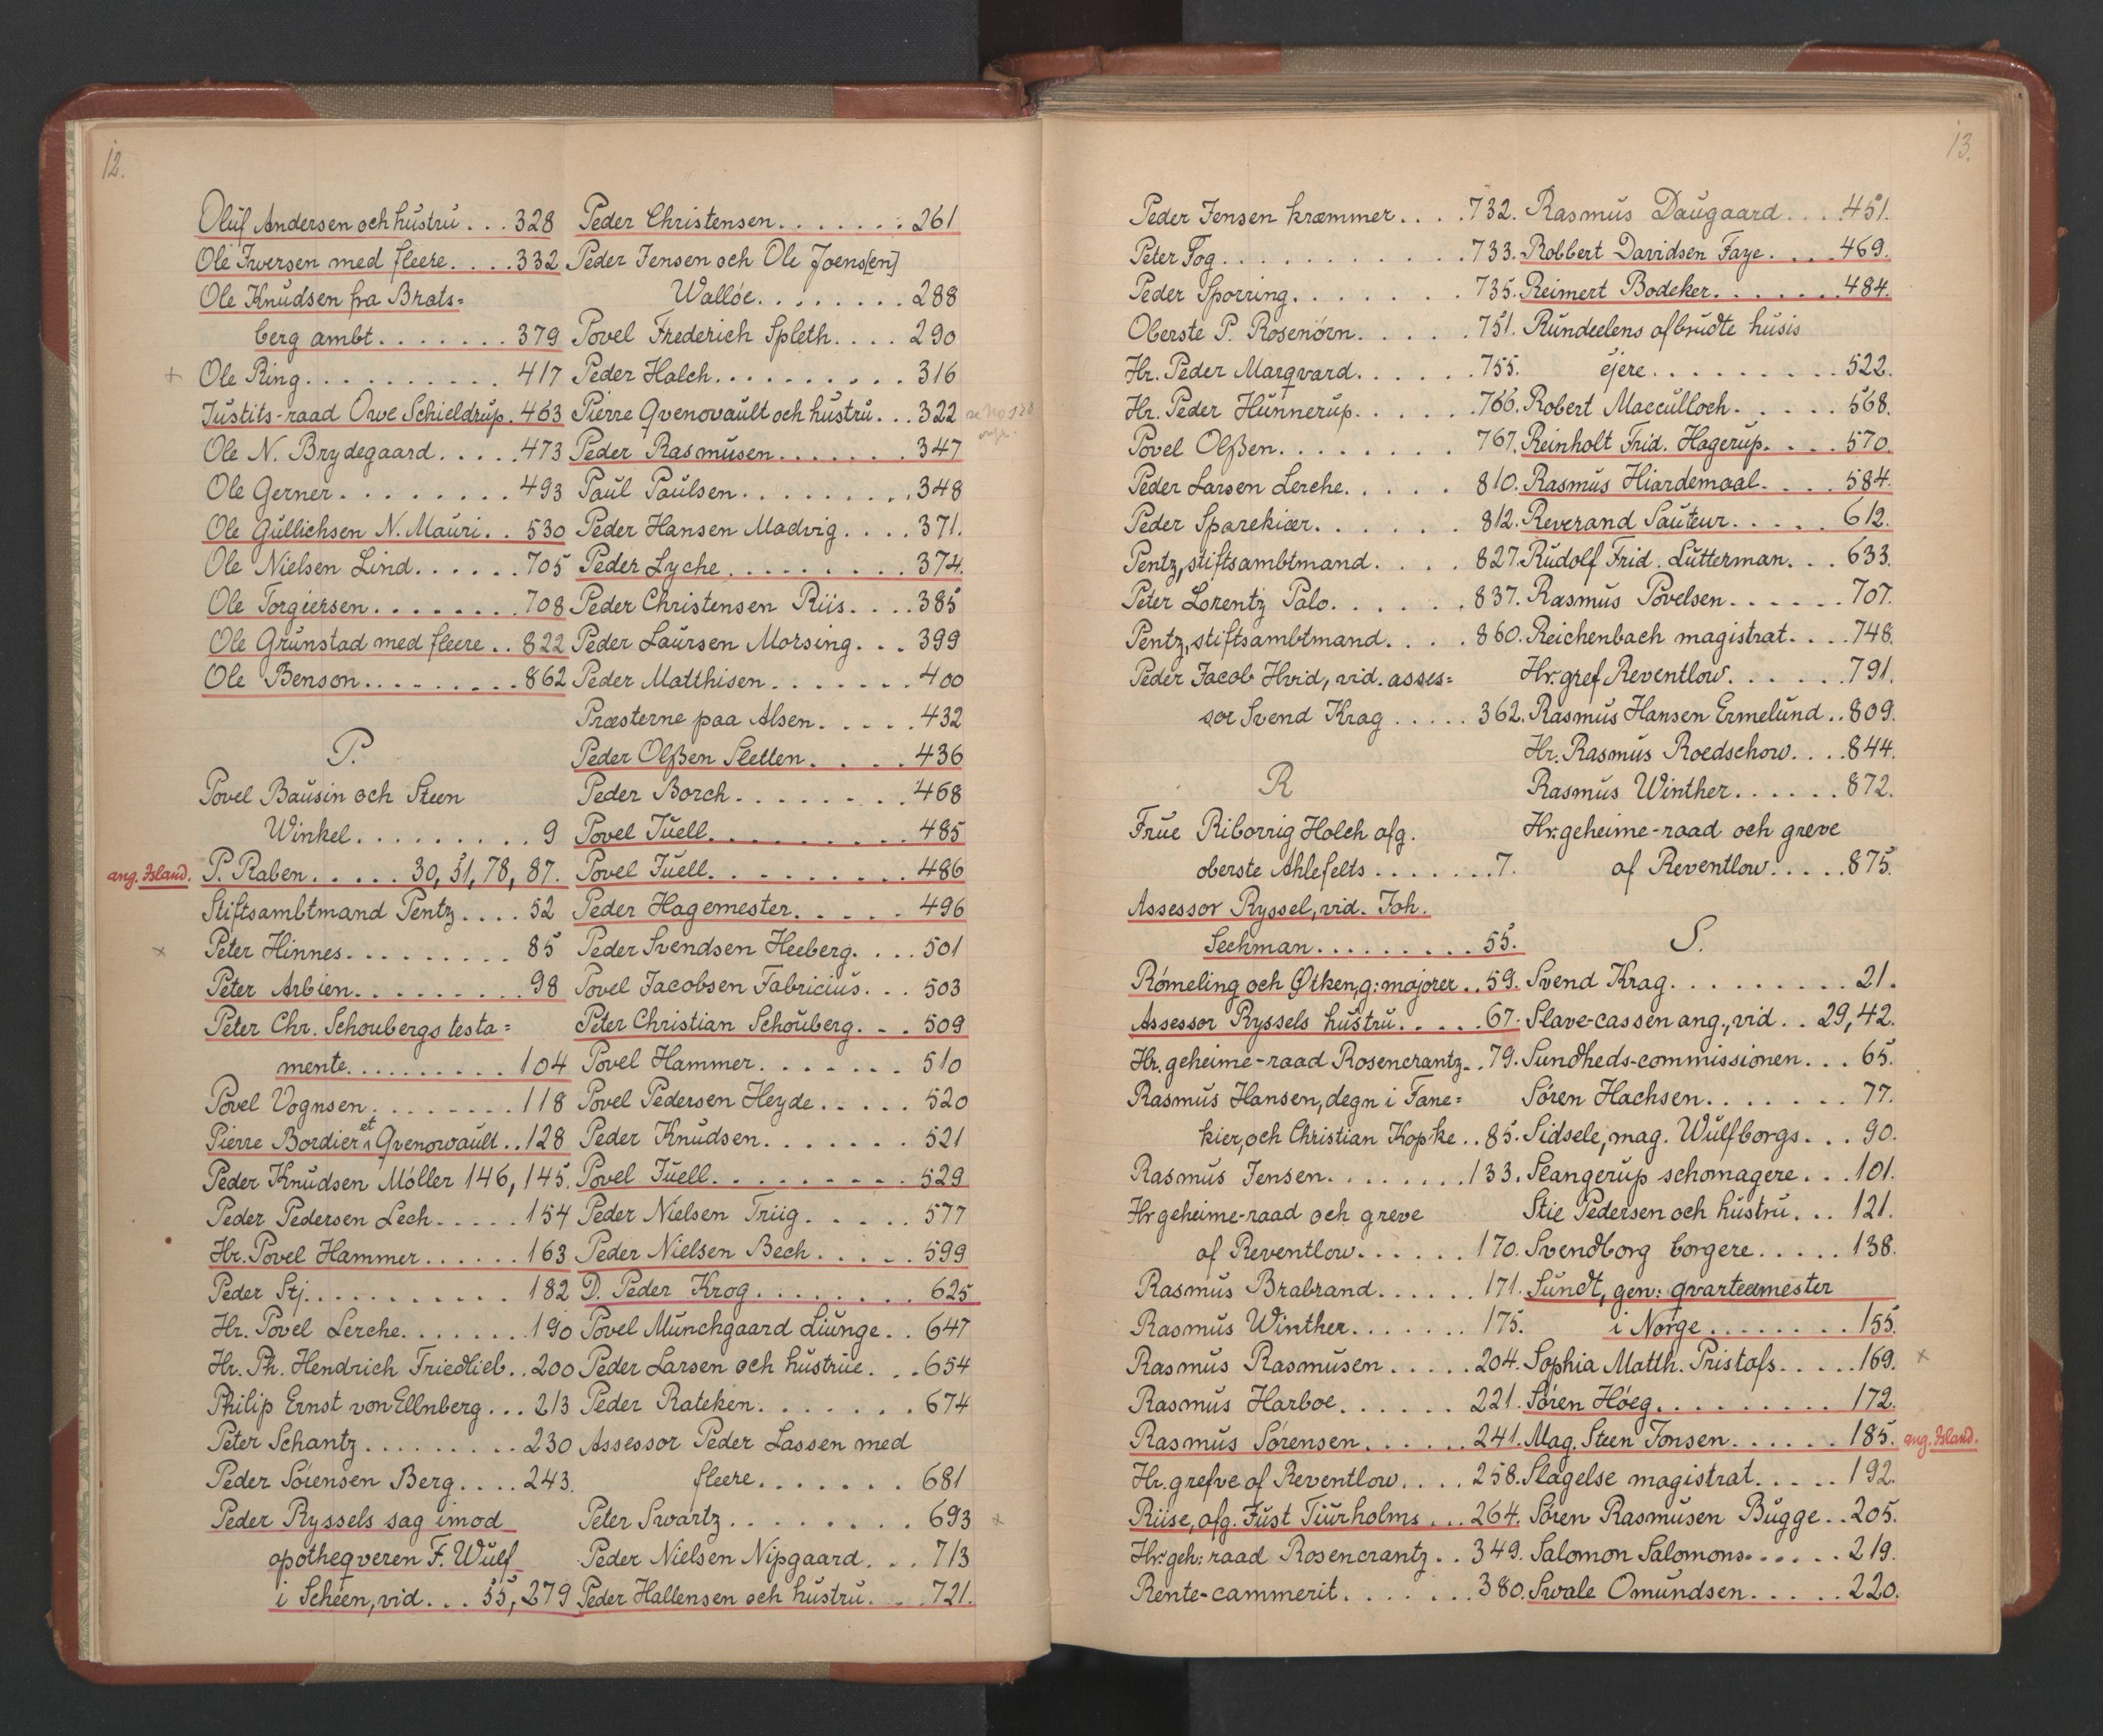 12.
Oluf Andersen och hustru . . . 328
Ole Iwersen med fleere. . . . 332
Ole Knudsen fra Brats=
berg ambt. . . . . . . 379
+ Ole Ring. . . . . . . . . . 417
Justits-raad Owe Schieldrup. 463
Ole N. Brydegaard. . . . . 473
Ole Gerner. . . . . . . . . 493
Ole Gullichsen N. Mauri. . 530
Ole Nielsen Lind. . . . . . 705
Ole Torgiersen. . . . . . . . 708
Ole Grunstad med fleere . . 822
Ole Benson. . . . . . . . . 862
P.
Povel Bausin och Steen
Winkel. . . . . . . . . 9
ang. Island. P. Raben. . . . . 30, 51, 78, 87.
Stiftsambtmand Pentz. . . . 52
× Peter Hinnes. . . . . . . . . 85
Peter Arbien. . . . . . . . . 98
Peter Chr. Schoubergs testa=
mente. . . . . . . . . . 104
Povel Vognsen. . . . . . . . 118
Pierre Bordier et Qvenowault . . 128
Peder Knudsen Möller 146, 145.
Peder Pedersen Lech. . . . . 154
Hr. Povel Hammer. . . . . . 163
Peder Stj. . . . . . . . . . . 182
Hr. Povel Lerche. . . . . . . 190
Hr. Ph. Hendrich Friedlieb. . 200
Philip Ernst von Ellnberg. . . 213
Peter Schantz. . . . . . . . . 230
Peder Sörensen Berg. . . . 243.
Peder Ryssels sag imod
apotheqveren F. Wulf
i Scheen, vid. . . 55, 279
Peder Christensen. . . . . . . 261
Peder Jensen och Ole Joens[en]
Wallöe. . . . . . . . 288
Povel Frederich Spleth. . . . 290
Peder Holch. . . . . . . . . . 316
Pierre Qvenovault och hustru. . . 322
Peder Rasmusen. . . . . . . 347
Paul Paulsen. . . . . . . . . 348
Peder Hansen Madvig. . . . 371.
Peder Lyche. . . . . . . . . 374.
Peder Christensen Riis. . . . 385
Peder Laursen Morsing. . . 399
Peder Matthisen. . . . . . . 400
Præsterne paa Alsen. . . . . 432
Peder Olßen Sletten. . . . . 436
Peder Borch. . . . . . . . 468
Povel Juell. . . . . . . . . 485
Povel Juell. . . . . . . . . 486
Peder Hagemester. . . . . 496
Peder Svendsen Heeberg. . . . 501
Povel Jacobsen Fabricius. . . 503
Peter Christian Schouberg. . . 509
Povel Hammer. . . . . . . 510
Povel Pedersen Heyde. . . . . 520
Peder Knudsen. . . . . . . 521
Povel Juell. . . . . . . . . 529
Peder Nielsen Triig. . . . . . 577
Peder Nielsen Bech. . . . . 599
D. Peder Krog. . . . . . . . 625
Povel Munchgaard Liunge. . 647
Peder Larsen och hustrue. . . 654
Peder Rateken. . . . . . . 674
Assessor Peder Lassen med
fleere. . . . . . . 681
Peter Swartz. . . . . . . . . 693 ×
Peder Nielsen Nipgaard. . . 713
Peder Hallensen och hustru. . . . 721.
13.
Peder Jensen kræmmer. . . . 732.
Peter Fog. . . . . . . . . . . 733.
Peder Sporring. . . . . . . . 735.
Oberste P. Rosenörn. . . . . . 751.
Hr. Peder Marqvard. . . . . . 755.
Hr. Peder Hunnerup. . . . . . 766.
Povel Olßen. . . . . . . . . 767.
Peder Larsen Lerche. . . . . 810.
Peder Sparekiær. . . . . . . 812.
Pentz, stiftsambtmand. . . . . 827.
Peter Lorentz Palo. . . . . . . 837.
Pentz, stiftsambtmand. . . . . 860.
Peder Jacob Hvid, vid. asses=
sor Svend Krag . . . . . 362.
R
Frue Riborrig Holch afg.
oberste Ahlefelts . . . . . . . 7.
Assessor Ryssel, vid. Joh.
Sechman. . . . . . . . . . 55.
Römeling och Øtken, g: majorer . . 59.
Assessor Ryssels hustru. . . . . 67.
Hr. geheime-raad Rosencrantz. . 79.
Rasmus Hansen, degn i Fane=
kier, och Christian Kopke . . 85.
Rasmus Jensen. . . . . . . . 133.
Hr geheime-raad och greve
af Reventlow. . . . . . 170.
Rasmus Brabrand. . . . . . 171.
Rasmus Winther. . . . . . . 175.
Rasmus Rasmusen . . . . . 204.
Rasmus Harboe. . . . . . . 221.
Rasmus Sörensen. . . . . . 241.
Hr. grefve af Reventlow. . . . 258.
Riise, afg. Just Tiurholms . . . 264.
Hr: geh: raad Rosencrantz. . 349.
Rente-cammerit. . . . . . . 380.
Rasmus Daugaard. . . . 451.
Robbert Davidsen Faye. . . . 469.
Reimert Bodeker. . . . . . . 484.
Rundeelens afbrudte husis
ejere. . . . . . . . . . 522.
Robert Macculloch. . . . . . 568.
Reinholt Frid. Hagerup. . . . 570.
Rasmus Hiardemaal. . . . . 584.
Reverand Sauteur. . . . . 612.
Rudolf Frid. Lutterman. . . 633.
Rasmus Povelsen. . . . . . 707.
Reichenbach magistrat. . . . 748.
Hr. gref Reventlow. . . . . . 791.
Rasmus Hansen Ermelund . . 809.
Hr. Rasmus Roedschow. . . . 844.
Rasmus Winther. . . . . . 872.
Hr. geheime-raad och greve
af Reventlow. . . . . 875.
S.
Svend Krag. . . . . . . . . . 21.
Slave-cassen ang., vid. . 29, 42.
Sundheds-commissionen. . . 65.
Sören Hachsen. . . . . . . 77.
Sidsele, mag. Wulfborgs. . . 90.
Slangerup schomagere. . . 101.
Stie Pedersen och hustru. . . 121.
Svendborg borgere. . . . . 138.
Sundt, gen: qvarteermester
i Norge. . . . . . . . 155.
Sophia Matth. Pristofs. . . . . 169. ×
Sören Höeg. . . . . . . . . 172.
Mag. Steen Jonsen. . . . . . 185. ang. Island.
Slagelse magistrat. . . . . 192.
Sören Rasmusen Bugge. . 205.
Salomon Salomons. . . . . . 219.
Swale Omundsen. . . . . 220.